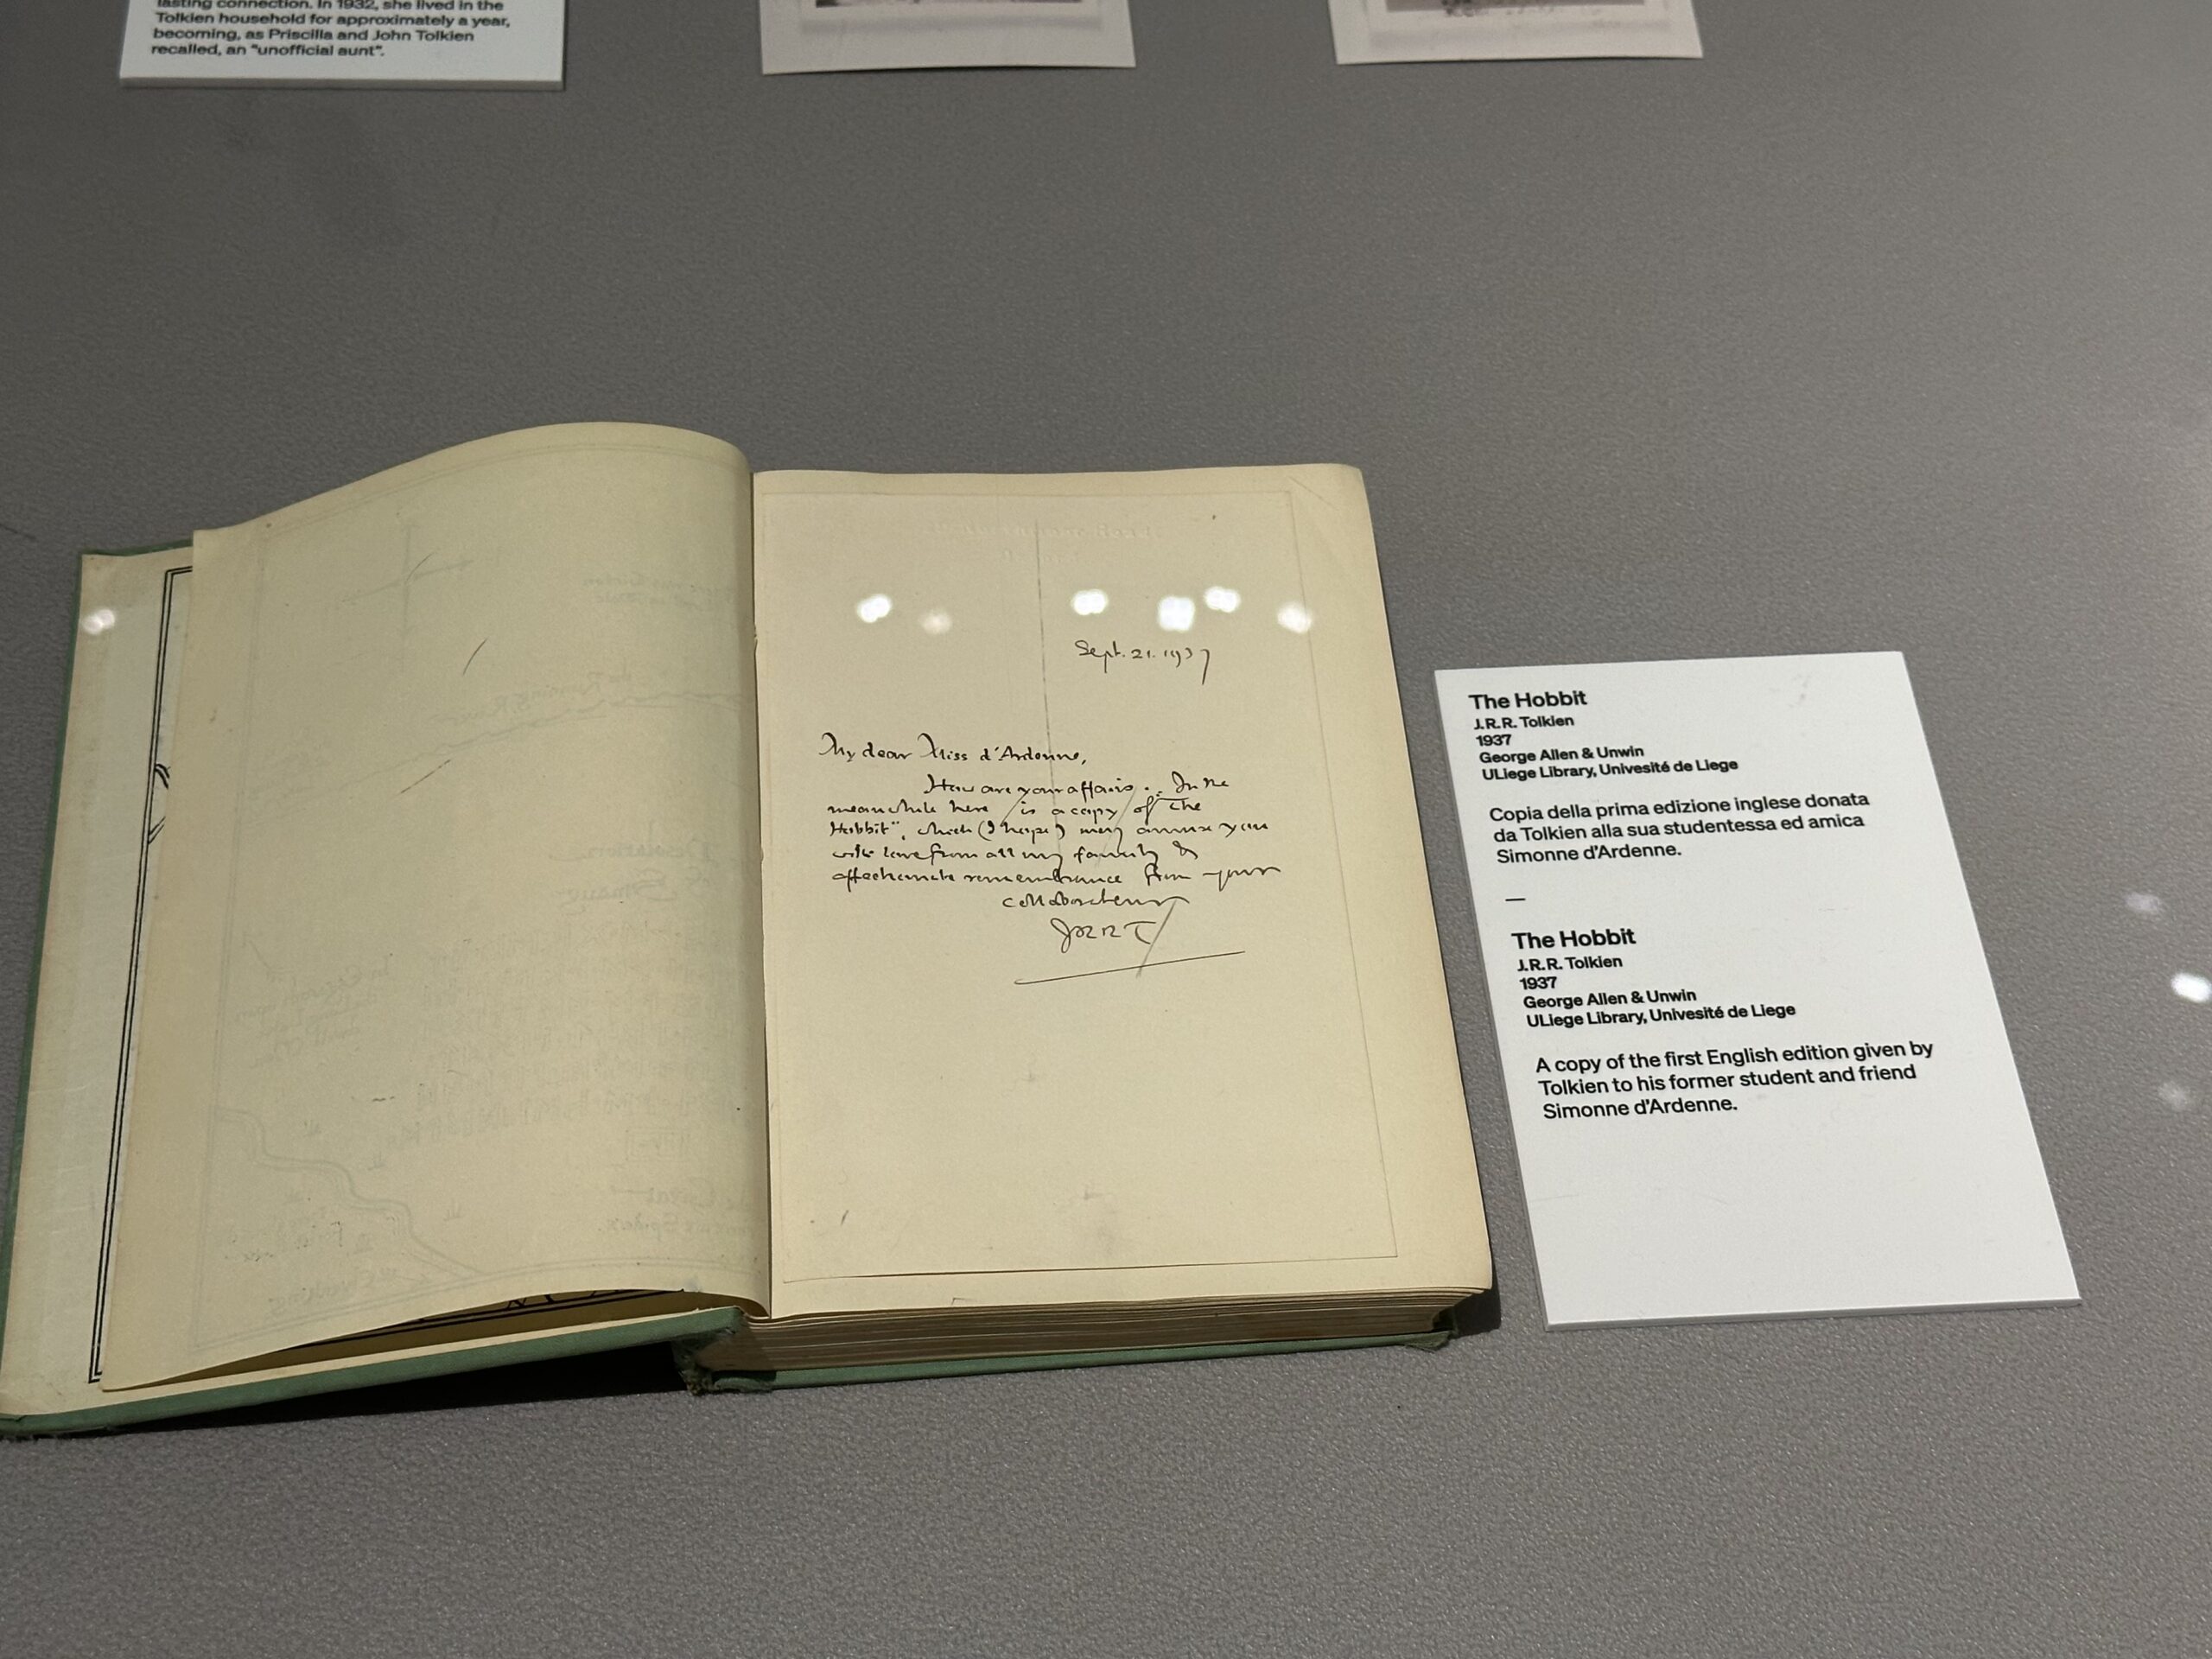 lasting connection. In 1932, she lived in the
Tolkien household for approximately a year,
becoming, as Priscilla and John Tolkien
recalled, an "unofficial aunt".
Sept. 21. 1937
My dear Miss d'Ardenne,
How are your affairs. In the
meanwhile here is a copy of "the
Hobbit", which (I hope) may amuse you
with love from all my family &
affectionate remembrance from your
collaborateur
JRRT
The Hobbit
J.R.R. Tolkien
1937
George Allen & Unwin
ULiege Library, Univesité de Liege
Copia della prima edizione inglese donata
da Tolkien alla sua studentessa ed amica
Simonne d'Ardenne.
—
The Hobbit
J.R.R. Tolkien
1937
George Allen & Unwin
ULiege Library, Univesité de Liege
A copy of the first English edition given by
Tolkien to his former student and friend
Simonne d'Ardenne.